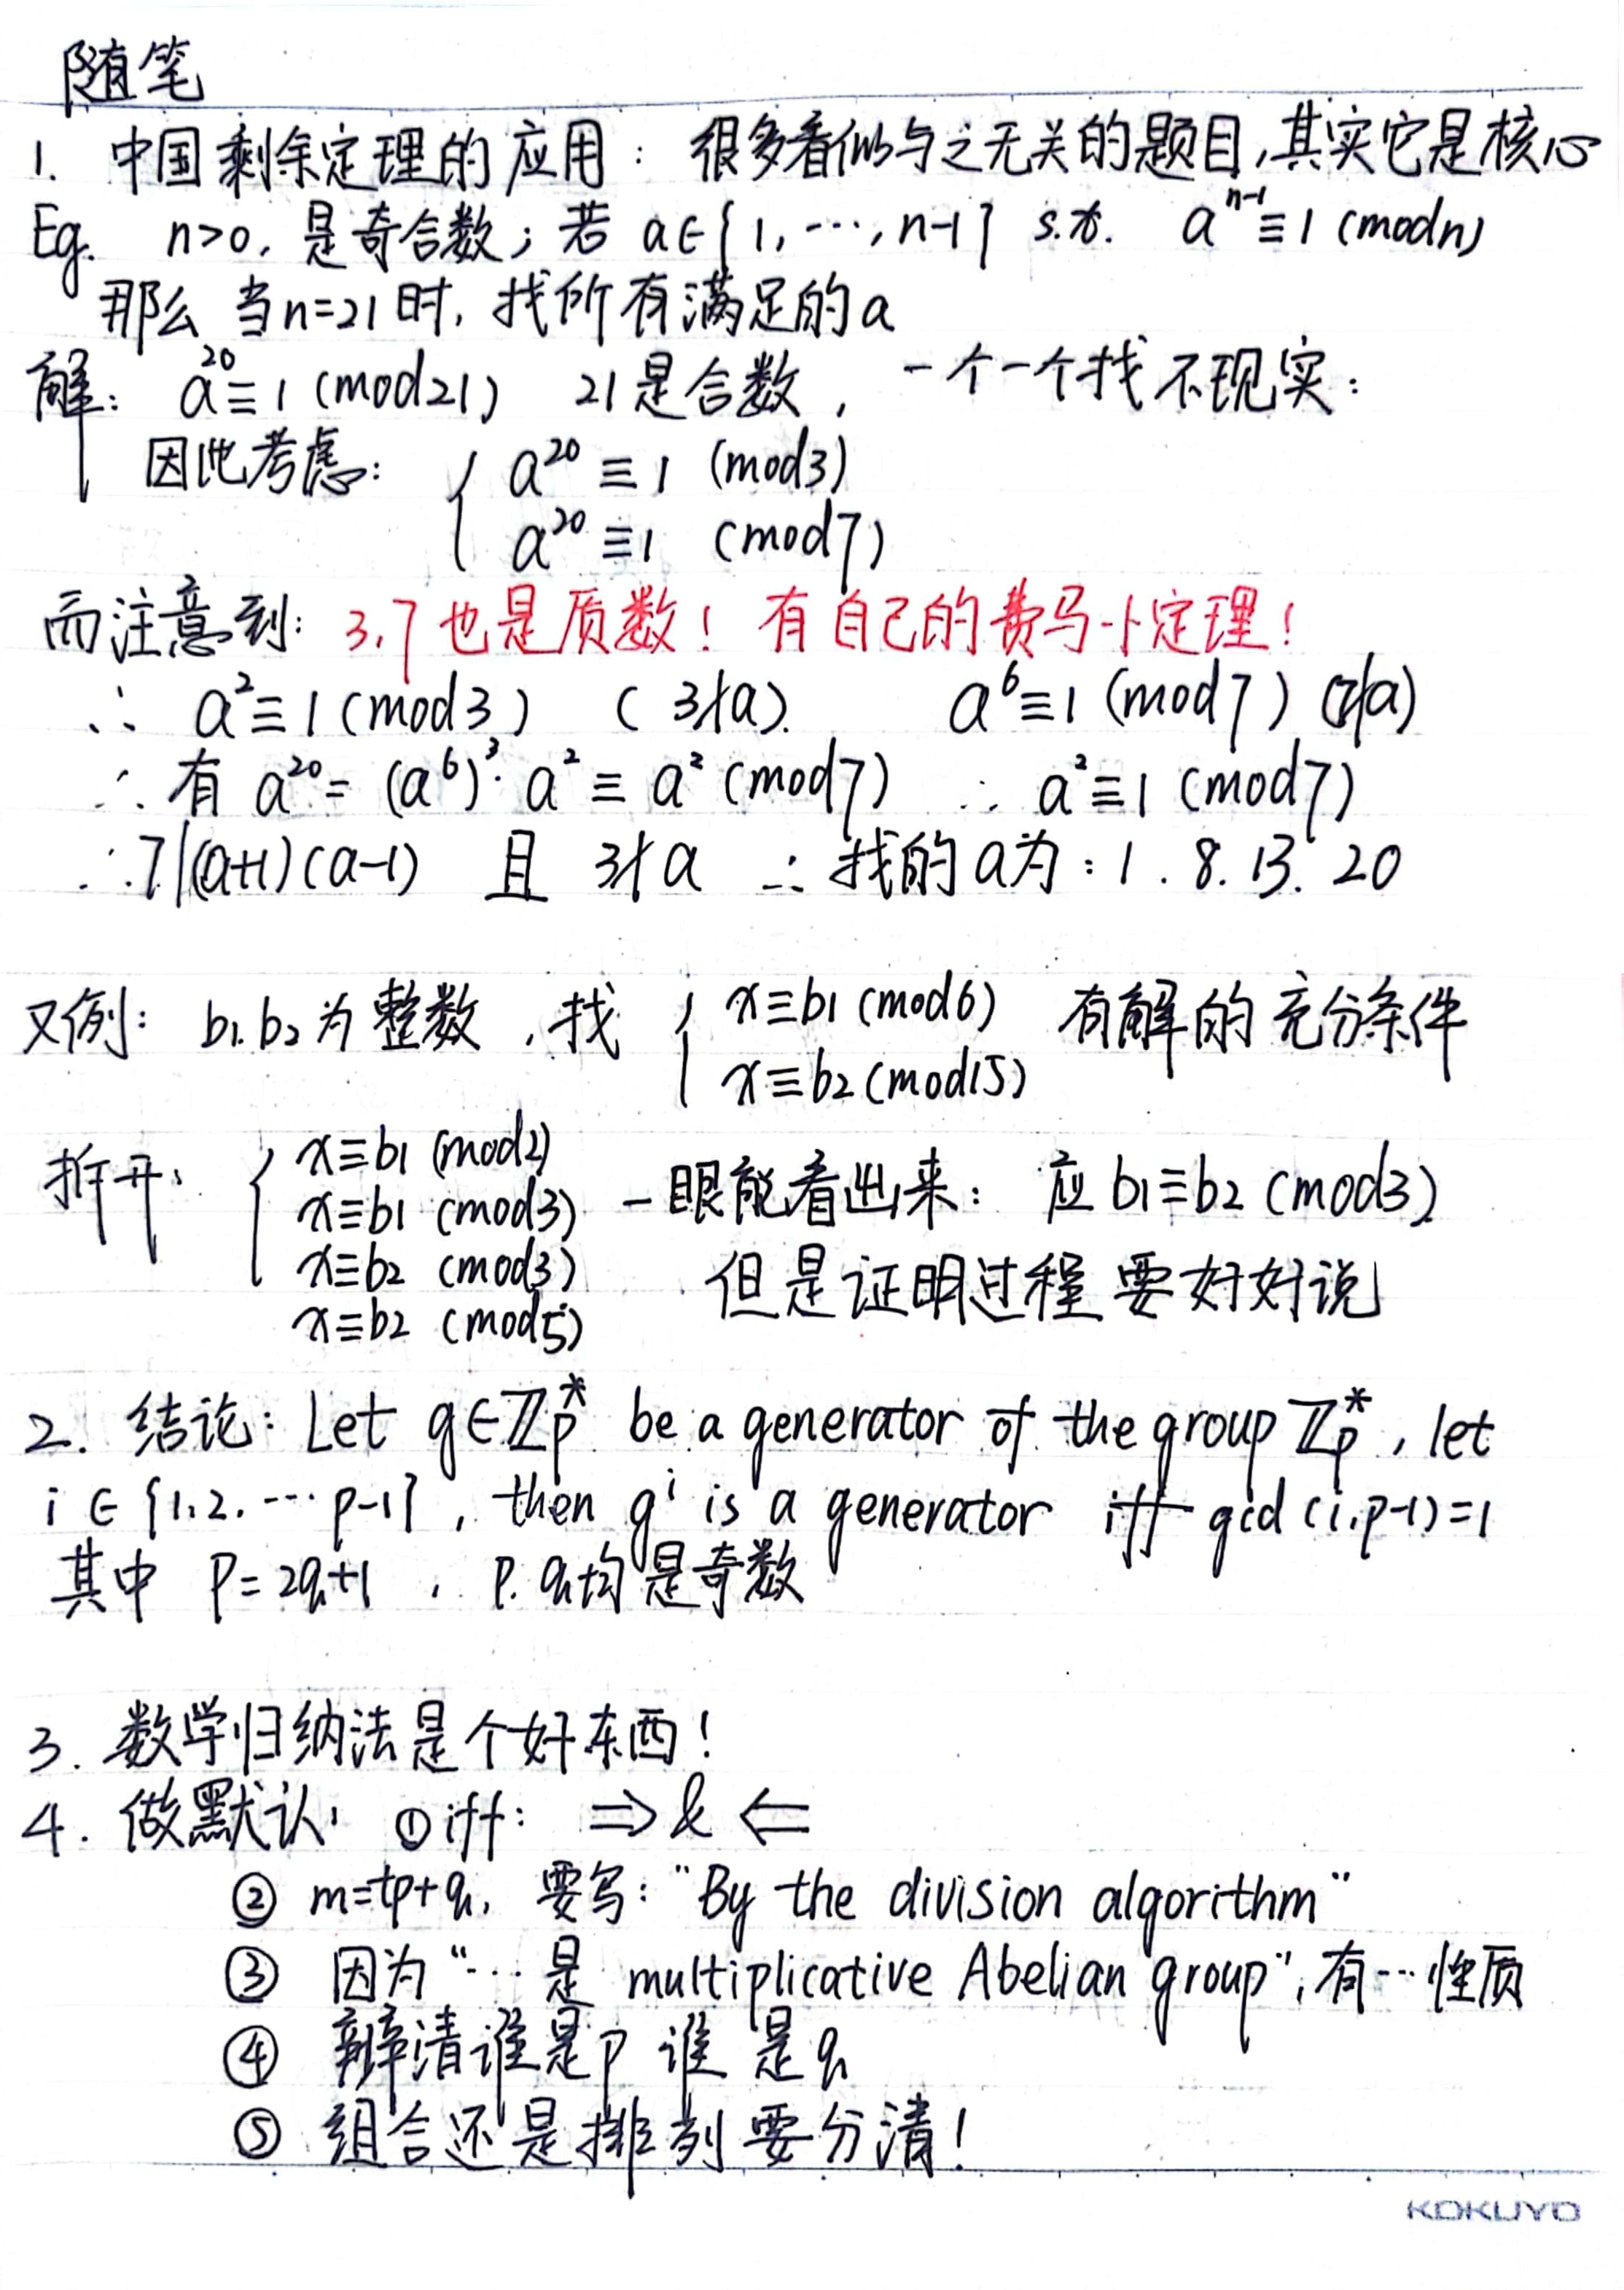 随笔
1. 中国剩余定理的应用：很多看似与之无关的题目,其实它是核心
Eg. n>0, 是奇合数；若 a∈{1,…,n-1} s.t. a^{n-1}≡1 (mod n)
那么 当n=21时, 找所有满足的a
解： a^{20}≡1 (mod21) 21是合数, 一个一个找不现实：
因此考虑： { a^{20}≡1 (mod3)
a^{20}≡1 (mod7)
而注意到：3.7也是质数！有自己的费马小定理！
∴ a²≡1 (mod3) (3∤a). a⁶≡1 (mod7) (7∤a)
∴ 有 a^{20}=(a⁶)³·a²≡a² (mod7) ∴ a²≡1 (mod7)
∴7|(a+1)(a-1) 且 3∤a ∴ 找的a为：1. 8. 13. 20
又例： b₁.b₂为整数, 找 { x≡b₁ (mod6) 有解的充分条件
x≡b₂ (mod15)
拆开： { x≡b₁ (mod2)
x≡b₁ (mod3) 一眼能看出来： 应 b₁≡b₂ (mod3)
x≡b₂ (mod3) 但是证明过程要好好说
x≡b₂ (mod5)
2. 结论：Let g∈ℤₚ* be a generator of the group ℤₚ*, let
i∈{1.2.…p-1}, then gⁱ is a generator iff gcd(i,p-1)=1
其中 p=2q+1 , p.q均是奇数
3. 数学归纳法是个好东西！
4. 做默认： ① iff: ⇒ & ⇐
② m=tp+q, 要写："By the division algorithm"
③ 因为"…是 multiplicative Abelian group", 有…性质
④ 辨清谁是p 谁是q
⑤ 组合还是排列要分清！
KOKUYO